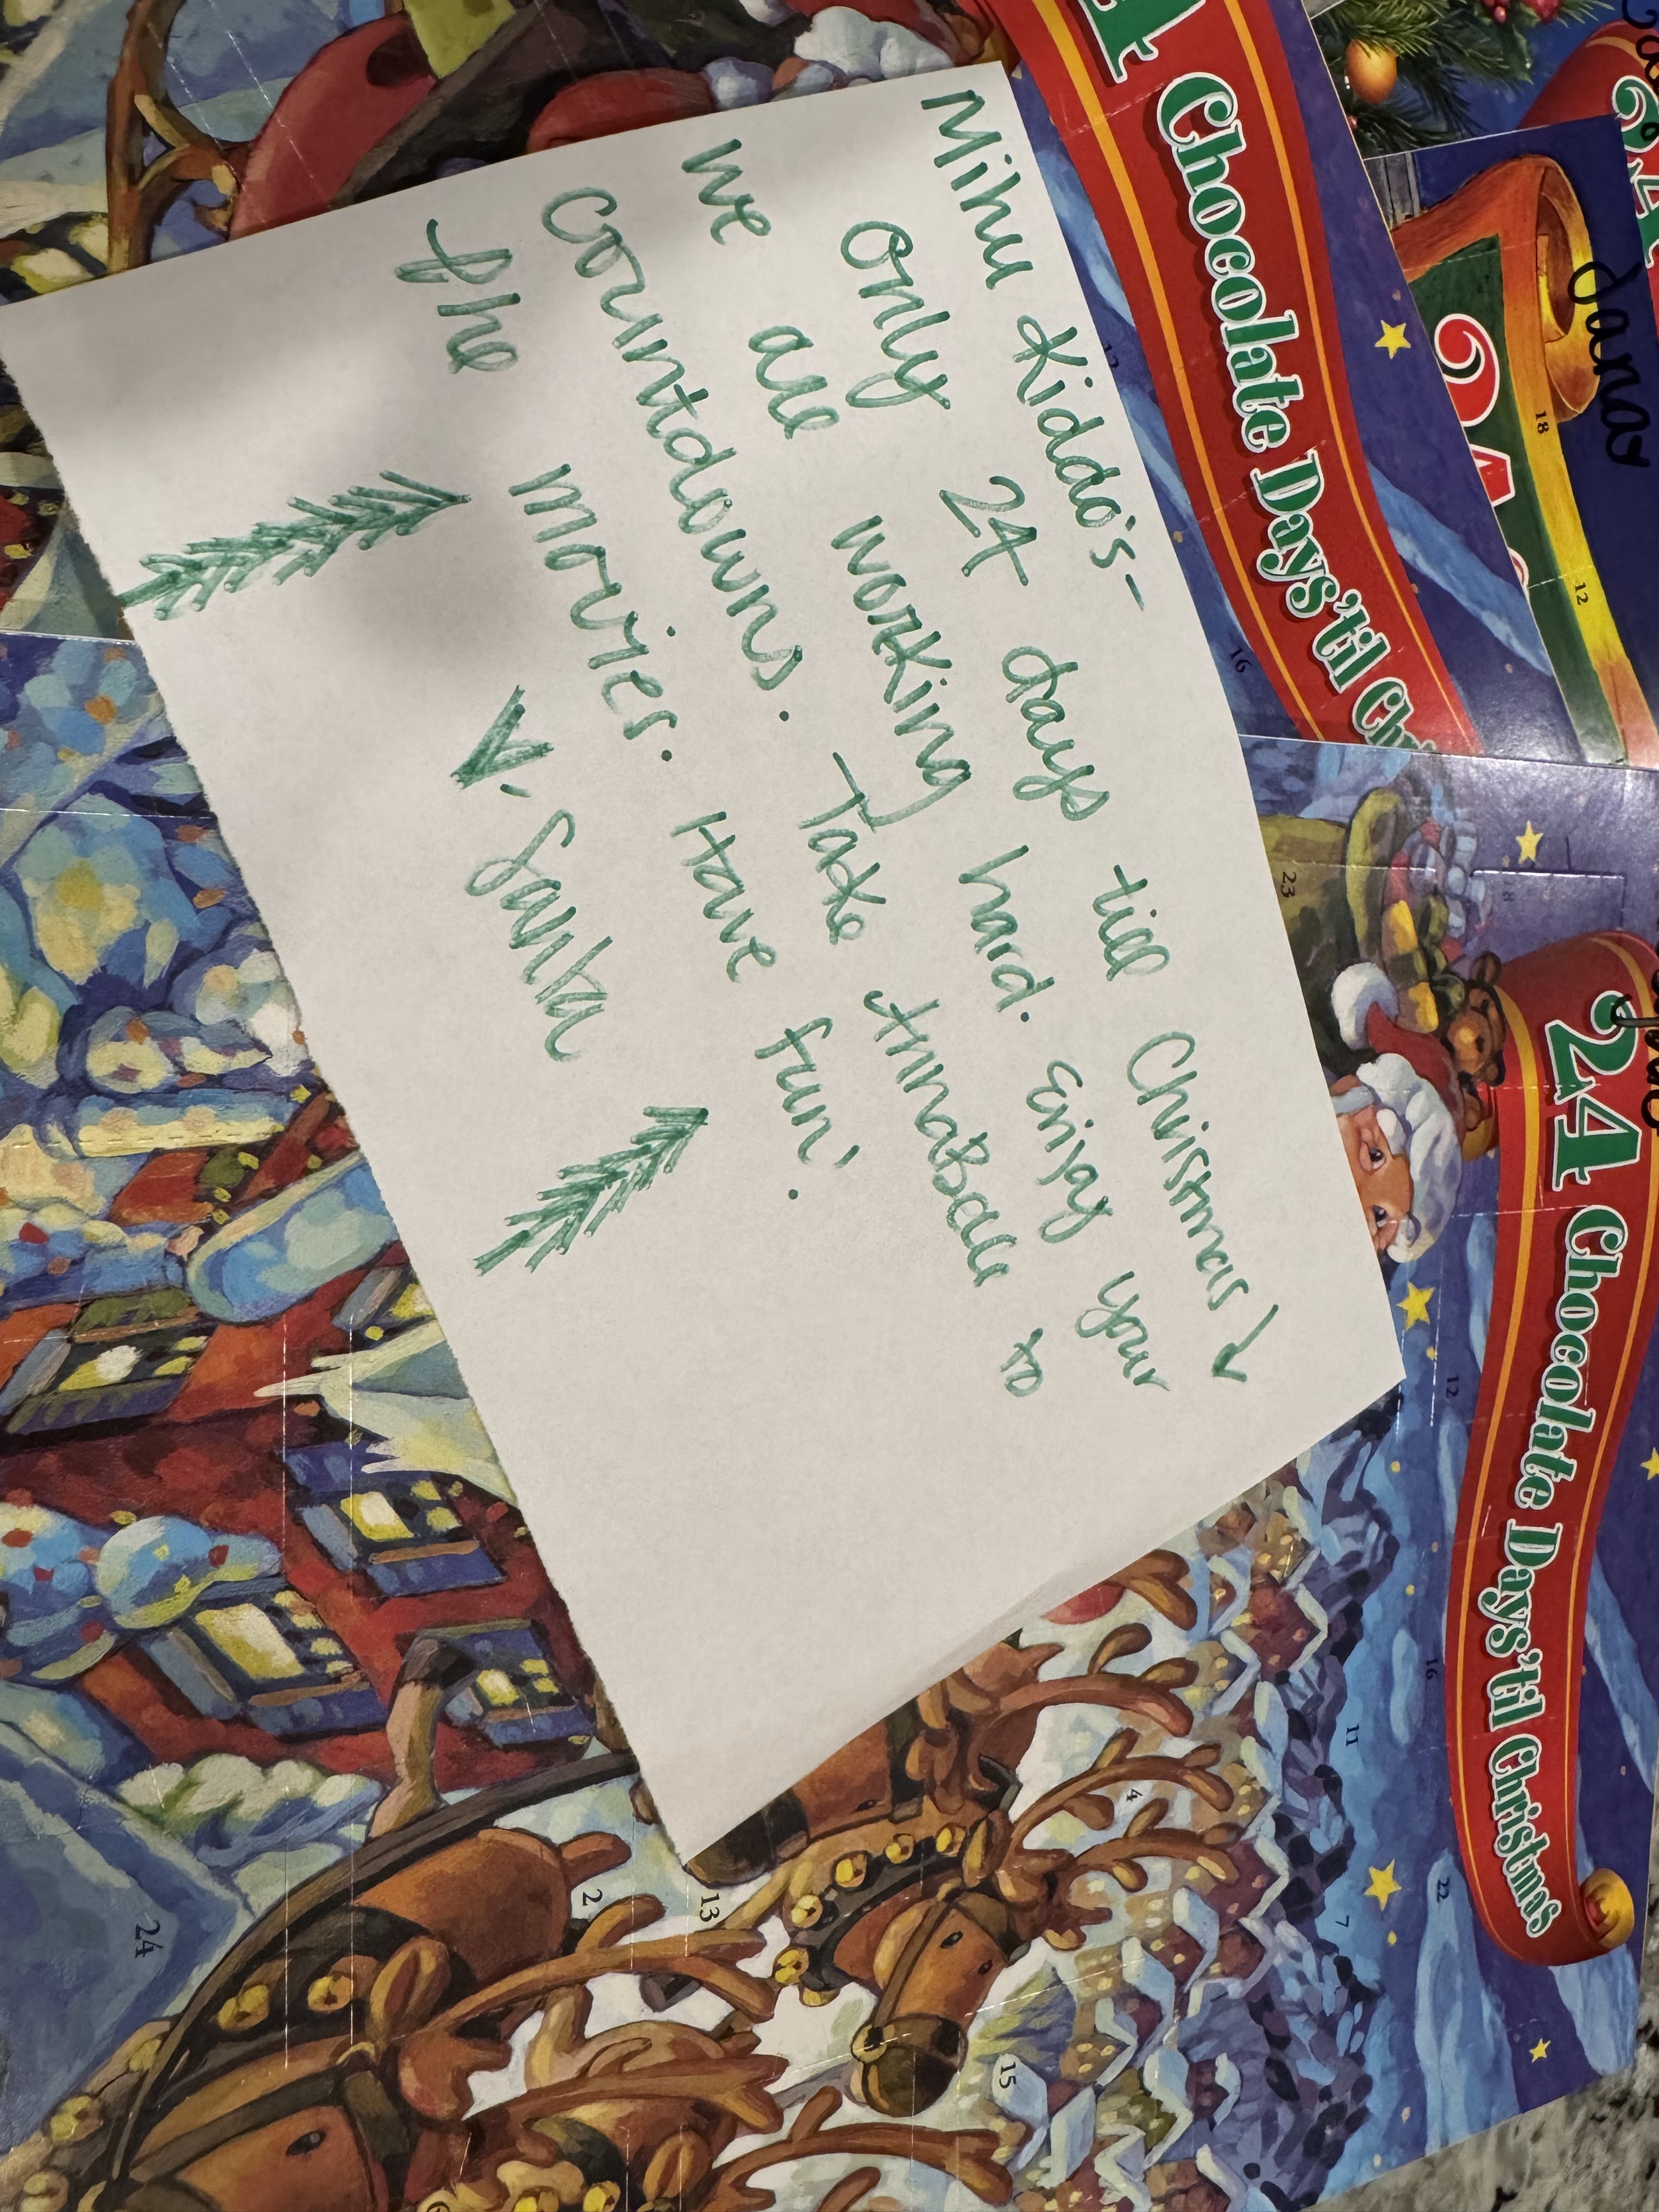 Mihu Kiddo's-
Only 24 days till Christmas!
We are working hard. Enjoy your
Countdowns. Take Annabelle to
the movies. Have fun!
V. Santa
4 Chocolate Days 'til Ch
24
Janas
18
12
16
23
8
24 Chocolate Days 'til Christmas
12
16
11
4
22
7
2
13
15
24